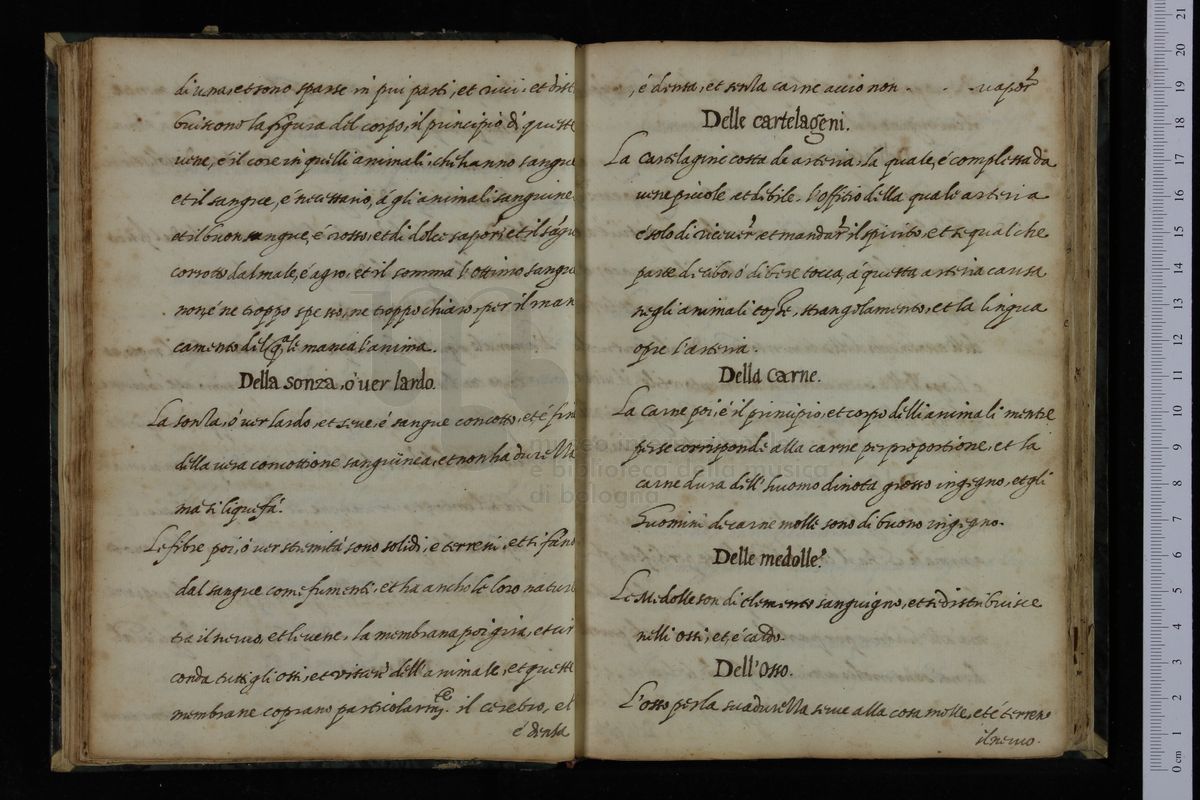 di vena, et sono sparse in piu parti, et
buiscono la figura del corpo, il principio di queste
vene, é il core in quelli animali, che hanno sangue
et il sangue, é necessario, á gli animali sanguine
et il buon sangue, é rosso, et di dolce sapor̃, et il sãgu
corroto dal male, é agro, et il somma l'ottimo sangue
non é ne troppo spesso, ne troppo chiaro, per il man
camento del q̃le manca l'anima.
Della sonza, ó ver lardo.
La sonza, ó ver lardo, et seve, é sangue concotto, et é
della vera concottione sanguinea, et non ha durezza
ma si liquefá.
Le fibre poi, ó ver stremitá sono solidi, e terreni, et si fãno
dal sangue come fumenti, et ha ancho le loro nature
tra il nervo, et le vene, la membrana poi gira, et cir
conda tutti gli ossi, et viscerĩ dell'animale, et queste
membrane coprano particolarmte. il cerebro, el
é densa
, é densa, et senza carne accio non . . . vapor̃
Delle cartelageni.
La cartelagine costa de arteria, la quale, é complessa da
vene picole et debile. l'offitio della quale arteria
é solo di ricever̃ et mandar̃ il spirito, et se qualche
parte de cibo, ó di bere tocca, á questa arteria causa
negli animali tosse, strangolamento, et la lingua
opre l'arteria.
Della Carne.
La carne poi, é il principio, et corpo delli animali mentre
per se corrisponde alla carne per proportione, et la
carne dura dell'huomo dinota grosso ingegno, et gli
huomini de carne molle sono di buono ingegno.
Delle medolle.
Le Medolle son di elemento sanguigno, et se distribuisce
nelli ossi, et é caldo.
Dell'Osso.
L'osso per la sua durezza serve alla cosa molle, et é terreno
il nervo.
museo internazionale
e biblioteca della musica
di bologna
0 cm 1 2 3 4 5 6 7 8 9 10 11 12 13 14 15 16 17 18 19 20 21